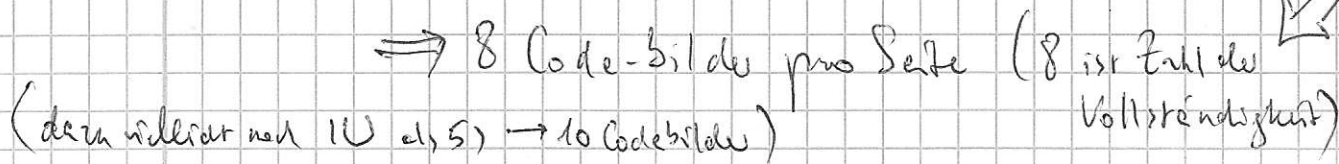 ⇒ 8 Code-bilder pro Seite (8 ist Zahl der
Vollständigkeit)
(dazu vielleicht noch 10 → 10 Codebilder)